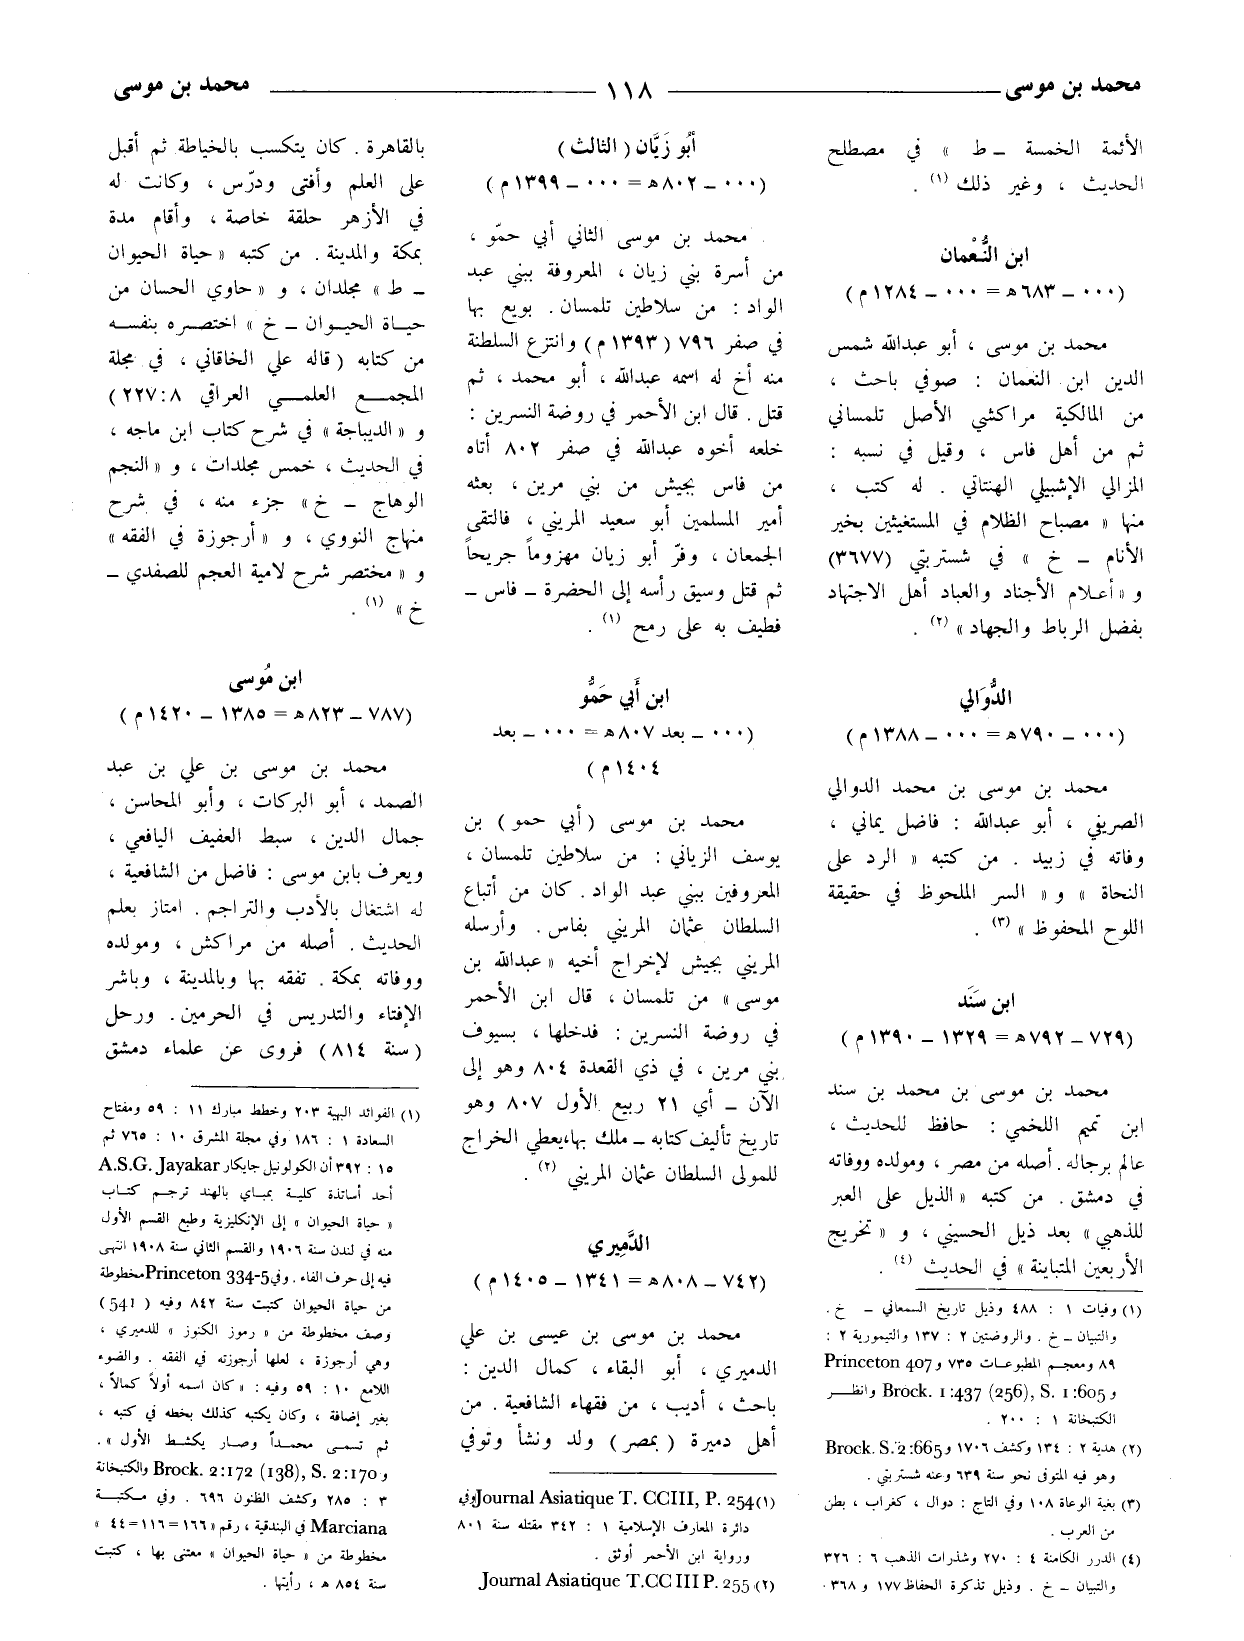 محمد بن موسى ١١٨ محمد بن موسى
الأئمة الخمسة – ط » في مصطلح
الحديث ، وغير ذلك (١) .
ابن النُّعْمان
(٠٠٠ – ٦٨٣ هـ = ٠٠٠ – ١٢٨٤ م)
محمد بن موسى ، أبو عبدالله شمس
الدين ابن النعمان : صوفي باحث ،
من المالكية مراكشي الأصل تلمساني
ثم من أهل فاس ، وقيل في نسبه :
المزالي الإشبيلي الهنتاني . له كتب ،
منها « مصباح الظلام في المستغيثين بخير
الأنام – خ » في شستربتي (٣٦٧٧)
و « أعلام الأجناد والعباد أهل الاجتهاد
بفضل الرباط والجهاد » (٢) .
الدُّوَالي
(٠٠٠ – ٧٩٠ هـ = ٠٠٠ – ١٣٨٨ م)
محمد بن موسى بن محمد الدوالي
الصريفي ، أبو عبدالله : فاضل يماني ،
وفاته في زبيد . من كتبه « الرد على
النحاة » و « السر الملحوظ في حقيقة
اللوح المحفوظ » (٣) .
ابن سَنَد
(٧٢٩ – ٧٩٢ هـ = ١٣٢٩ – ١٣٩٠ م)
محمد بن موسى بن محمد بن سند
ابن تميم اللخمي : حافظ للحديث ،
عالم برجاله . أصله من مصر ، ومولده ووفاته
في دمشق . من كتبه « الذيل على العبر
للذهبي » بعد ذيل الحسيني ، و « تخريج
الأربعين المتباينة » في الحديث (٤) .
(١) وفيات ١ : ٤٨٨ وذيل تاريخ السمعاني – خ .
والتبيان – خ . والروضتين ٢ : ١٣٧ والتيمورية ٢ :
٨٩ ومعجم المطبوعات ٧٣٥ و Princeton 407
و Brock. 1:437 (256), S. 1:605 وانظر
الكتبخانة ١ : ٢٠٠ .
(٢) هدية ٢ : ١٣٤ وكشف ١٧٠٦ و Brock. S. 2:665
وهو فيه المتوفى نحو سنة ٦٣٩ وعنه شستربتي .
(٣) بغية الوعاة ١٠٨ وفي التاج : دوال ، كغراب ، بطن
من العرب .
(٤) الدرر الكامنة ٤ : ٢٧٠ وشذرات الذهب ٦ : ٣٢٦
والتبيان – خ . وذيل تذكرة الحفاظ ١٧٧ و ٣٦٨ .
أبُو زَيَّان (الثالث)
(٠٠٠ – ٨٠٢ هـ = ٠٠٠ – ١٣٩٩ م)
محمد بن موسى الثاني أبي حمّو ،
من أسرة بني زيان ، المعروفة ببني عبد
الواد : من سلاطين تلمسان . بويع بها
في صفر ٧٩٦ (١٣٩٣ م) وانتزع السلطنة
منه أخ له اسمه عبدالله ، أبو محمد ، ثم
قتل . قال ابن الأحمر في روضة النسرين :
خلعه أخوه عبدالله في صفر ٨٠٢ أتاه
من فاس بجيش من بني مرين ، بعثه
أمير المسلمين أبو سعيد المريني ، فالتقى
الجمعان ، وفرّ أبو زيان مهزوماً جريحاً
ثم قتل وسيق رأسه إلى الحضرة – فاس –
فطيف به على رمح (١) .
ابن أَبي حَمُّو
(٠٠٠ – بعد ٨٠٧ هـ = ٠٠٠ – بعد
١٤٠٤ م)
محمد بن موسى (أبي حمو) بن
يوسف الزياني : من سلاطين تلمسان ،
المعروفين ببني عبد الواد . كان من أتباع
السلطان عثمان المريني بفاس . وأرسله
المريني بجيش لإخراج أخيه « عبدالله بن
موسى » من تلمسان ، قال ابن الأحمر
في روضة النسرين : فدخلها ، بسيوف
بني مرين ، في ذي القعدة ٨٠٤ وهو إلى
الآن – أي ٢١ ربيع الأول ٨٠٧ وهو
تاريخ تأليف كتابه – ملك بها،يعطي الخراج
للمولى السلطان عثمان المريني (٢) .
الدَّمِيري
(٧٤٢ – ٨٠٨ هـ = ١٣٤١ – ١٤٠٥ م)
محمد بن موسى بن عيسى بن علي
الدميري ، أبو البقاء ، كمال الدين :
باحث ، أديب ، من فقهاء الشافعية . من
أهل دميرة (بمصر) ولد ونشأ وتوفي
(١) Journal Asiatique T. CCIII, P. 254 وفي
دائرة المعارف الإسلامية ١ : ٣٤٢ مقتله سنة ٨٠١
ورواية ابن الأحمر أوثق .
(٢) Journal Asiatique T.CC III P. 255
بالقاهرة . كان يتكسب بالخياطة ثم أقبل
على العلم وأفتى ودرّس ، وكانت له
في الأزهر حلقة خاصة ، وأقام مدة
بمكة والمدينة . من كتبه « حياة الحيوان
– ط » مجلدان ، و « حاوي الحسان من
حياة الحيوان – خ » اختصره بنفسه
من كتابه (قاله علي الخاقاني ، في مجلة
المجمع العلمي العراقي ٨ : ٢٢٧)
و « الديباجة » في شرح كتاب ابن ماجه ،
في الحديث ، خمس مجلدات ، و « النجم
الوهاج – خ » جزء منه ، في شرح
منهاج النووي ، و « أرجوزة في الفقه »
و « مختصر شرح لامية العجم للصفدي –
خ » (١) .
ابن مُوسى
(٧٨٧ – ٨٢٣ هـ = ١٣٨٥ – ١٤٢٠ م)
محمد بن موسى بن علي بن عبد
الصمد ، أبو البركات ، وأبو المحاسن ،
جمال الدين ، سبط العفيف اليافعي ،
ويعرف بابن موسى : فاضل من الشافعية ،
له اشتغال بالأدب والتراجم . امتاز بعلم
الحديث . أصله من مراكش ، ومولده
ووفاته بمكة . تفقه بها وبالمدينة ، وباشر
الإفتاء والتدريس في الحرمين . ورحل
(سنة ٨١٤) فروى عن علماء دمشق
(١) الفوائد البهية ٢٠٣ وخطط مبارك ١١ : ٥٩ ومفتاح
السعادة ١ : ١٨٦ وفي مجلة المشرق ١٠ : ٧٦٥ ثم
١٥ : ٣٩٢ أن الكولونيل جايكار A.S.G. Jayakar
أحد أساتذة كلية بمباي بالهند ترجم كتاب
« حياة الحيوان » إلى الإنكليزية وطبع القسم الأول
منه في لندن سنة ١٩٠٦ والقسم الثاني سنة ١٩٠٨ انتهى
فيه إلى حرف الفاء . وفي Princeton 334-5 مخطوطة
من حياة الحيوان كتبت سنة ٨٤٢ وفيه (541)
وصف مخطوطة من « رموز الكنوز » للدميري ،
وهي أرجوزة ، لعلها أرجوزته في الفقه . والضوء
اللامع ١٠ : ٥٩ وفيه : « كان اسمه أولاً كمالاً ،
بغير إضافة ، وكان يكتبه كذلك بخطه في كتبه ،
ثم تسمى محمداً وصار يكشط الأول » .
و Brock. 2:172 (138), S. 2:170 والكتبخانة
٣ : ٢٨٥ وكشف الظنون ٦٩٦ . وفي مكتبة
Marciana في البندقية ، رقم « ١٦٦=١١٦=٤٤ »
مخطوطة من « حياة الحيوان » معتنى بها ، كتبت
سنة ٨٥٤ هـ ، رأيتها .